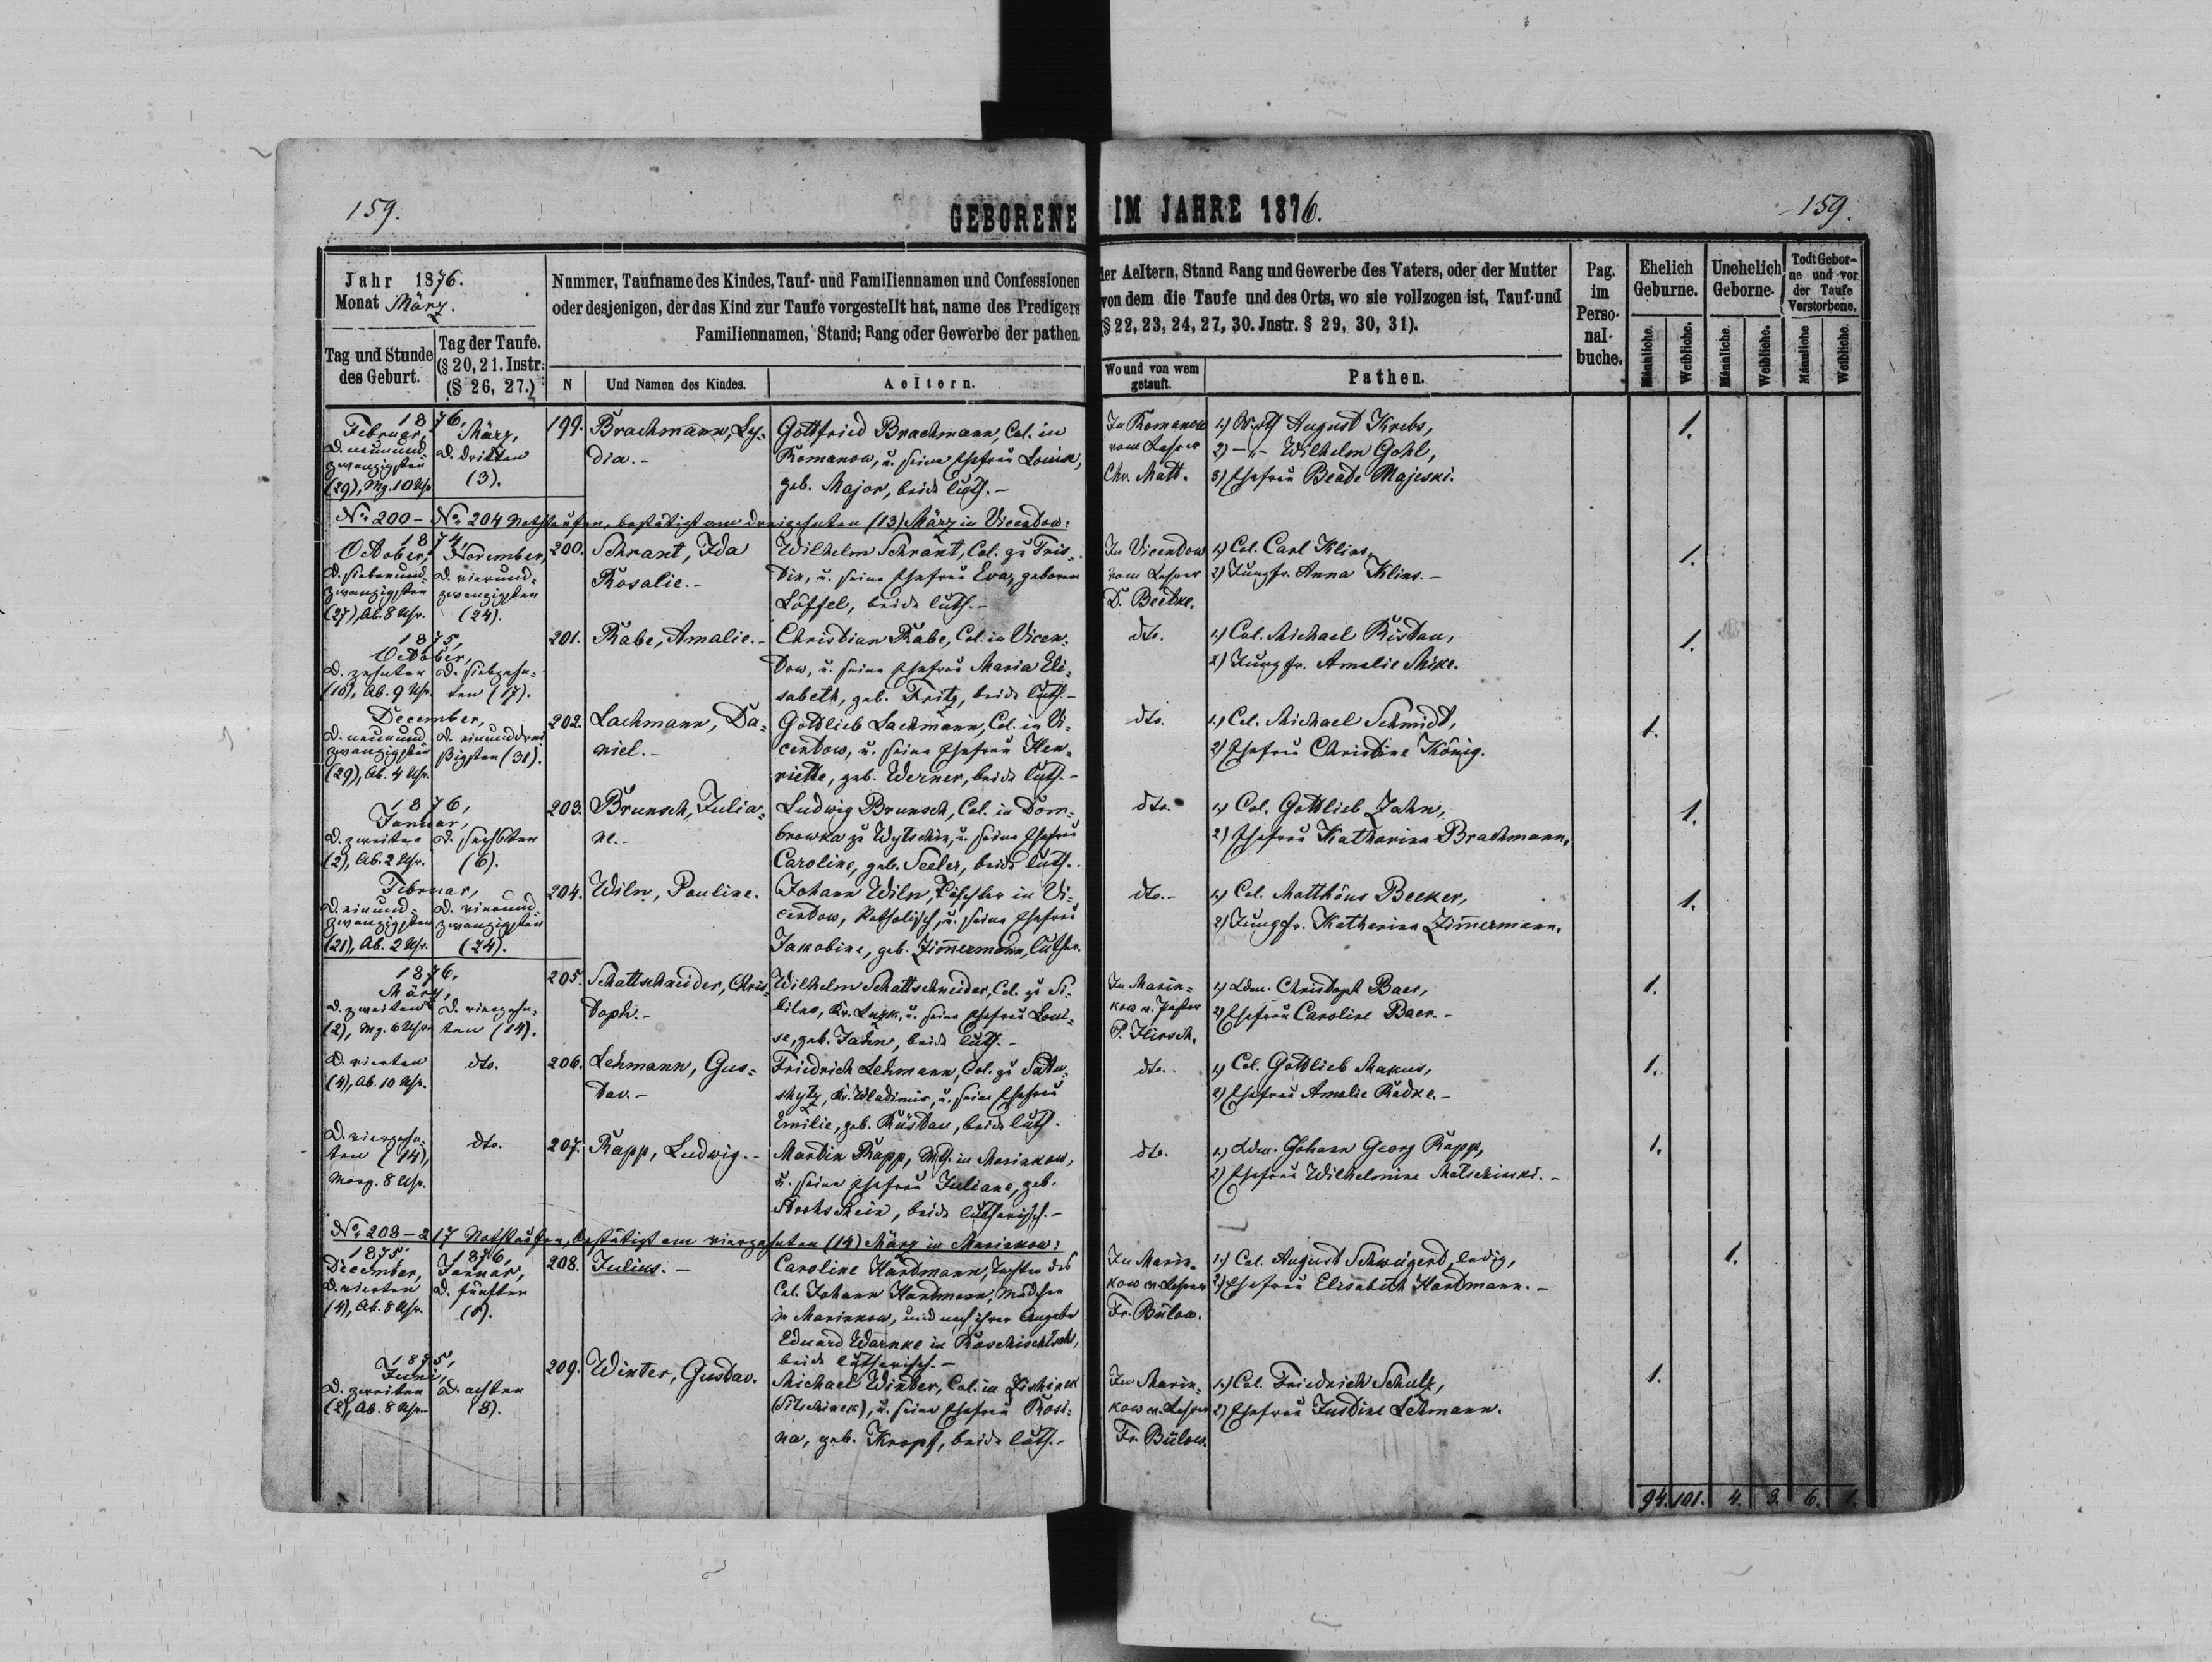 159.
GEBORENE IM JAHRE 1876.
159.
Jahr 1876.
Monat März.
Tag und Stunde
des Geburt.
Tag der Taufe.
(§ 20, 21. Instr.
(§ 26, 27.)
Nummer, Taufname des Kindes, Tauf- und Familiennamen und Confessionen
oder desjenigen, der das Kind zur Taufe vorgestellt hat, name des Predigers
Familiennamen, Stand; Rang oder Gewerbe der pathen.
N
Und Namen des Kindes.
Aeltern.
der Aeltern, Stand Rang und Gewerbe des Vaters, oder der Mutter
von dem die Taufe und des Orts, wo sie vollzogen ist, Tauf-und
(§ 22, 23, 24, 27, 30. Jnstr. § 29, 30, 31).
Wo und von wem
getauft.
Pathen.
Pag.
im
Perso-
nal-
buche.
Ehelich
Geburne.
Unehelich
Geborne.
Todt Gebor-
ne und vor
der Taufe
Verstorbene.
Männliche.
Weibliche.
Männliche.
Weibliche.
Männliche.
Weibliche.
1876,
Februar,
D. neunund-
zwanzigsten
(29), Mg. 10 Uhr
März,
D. dritten
(3).
199.
Brachmann, Ly-
dia.-
Gottfried Brachmann, Col. in
Romanow, u. seine Ehefrau Louise,
geb. Major, beide luth.-
In Romanow
vom Lehrer
Chr. Matt.
1) Wirth August Krebs,
2) -"- Wilhelm Gohl,
3) Ehefrau Beate Majeski.
1.
No. 200 - No. 204 Nothtaufen, bestätigt am dreizehnten (13) März in Vicentow:
1874,
October,
D. siebenund-
zwanzigsten
(27), Ab. 8 Uhr.
November,
D. vierund-
zwanzigsten
(24).
200.
Schrant, Ida
Rosalie.-
Wilhelm Schrant, Col. zu Tris-
tin, u. seine Ehefrau Eva, geboren
Löffel, beide luth.-
In Vicentow
vom Lehrer
D. Beetke.
1) Col. Carl Klins,
2) Jungfr. Anna Klins.-
1.
1875,
October,
D. zehnten
(10), Ab. 9 Uhr.
D. siebzehn-
ten (17).
201.
Rabe, Amalie.-
Christian Rabe, Col. in Vicen-
tow, u. seine Ehefrau Maria Eli-
sabeth, geb. Fritz, beide luth.-
dto.
1) Col. Michael Ristau,
2) Jungfr. Amalie Mike.
1.
December,
D. neunund
zwanzigsten
(29), Ab. 4 Uhr.
D. einunddrei
ßigsten (31).
202.
Lachmann, Da-
niel.-
Gottlieb Lachmann, Col. in Vi-
centow, u. seine Ehefrau Hen-
riette, geb. Werner, beide luth.-
dto.
1) Col. Michael Schmidt,
2) Ehefrau Christine König.
1.
1876,
Januar,
D. zweiten
(2), Ab. 2 Uhr.
D. sechsten
(6).
203.
Brunsch, Julia-
ne.-
Ludwig Brunsch, Col. in Dom-
browka zu Wytschin, u. seine Ehefrau
Caroline, geb. Seeler, beide luth.
dto.
1) Col. Gottlieb Jahn,
2) Ehefrau Katharina Brachmann.
1.
Februar,
D. einund-
zwanzigsten
(21), Ab. 2 Uhr.
D. vierund
zwanzigsten
(24).
204.
Wiln, Pauline.
Johann Wiln, Tischler in Vi-
centow, katholisch, u. seine Ehefrau
Jakobine, geb. Zimmermann, luther.
dto.-
1) Col. Matthäus Becker,
2) Jungfr. Katharina Zimmermann.
1.
1876,
März,
D. zweiten
(2), Mg. 6 Uhr
D. vierzehn-
ten (14).
205.
Schattschneider, Chris-
toph.-
Wilhelm Schattschneider, Col. zu Si-
bilno, Kr. Luzk, u. seine Ehefrau Loui-
se, geb. Jahn, beide luth.-
In Marin-
kow v. Pastor
P. Hirsch.
1) Ldm. Christoph Baer,
2) Ehefrau Caroline Baer.-
1.
D. vierten
(4), Ab. 10 Uhr.
dto.
206.
Lehmann, Gus-
tav.-
Friedrich Lehmann, Col. zu Satu-
skytz, Kr. Wladimir, u. seine Ehefrau
Emilie, geb. Rüstau, beide luth.
dto.
1) Col. Gottlieb Makus,
2) Ehefrau Amalie Radke.-
1.
D. vierzehn-
ten (14),
Morg. 8 Uhr.
dto.
207.
Rapp, Ludwig.-
Martin Rapp, in Marinkow,
u. seine Ehefrau Juliane, geb.
Strohschein, beide lutherisch.-
dto.
1) Ldm. Johann Georg Rapp,
2) Ehefrau Wilhelmine Malschinski.-
1.
No. 208 - 217 Nothtaufen, bestätigt am vierzehnten (14) März in Marinkow:
1875,
December,
D. vierten
(4), Ab. 8 Uhr.
1876,
Januar,
D. fünften
(5).
208.
Julius.-
Caroline Hartmann, Tochter des
Col. Johann Hartmann, Mädchen
in Marinkow, und nach ihrer Angabe
Eduard Warnke in
beide lutherisch.-
In Marin-
kow v. Lehrer
Fr. Bülow.
1) Col. August Schweigerd, ledig,
2) Ehefrau Elisabeth Hartmann.-
1.
1875,
Juni,
D. zweiten
(2), Ab. 8 Uhr.
D. achten
(8).
209.
Winter, Gustav.
Michael Winter, Col. in Zischinek
(Silschinek), u. seine Ehefrau Rosi-
na, geb. Kropf, beide luth.-
In Marin-
kow v. Lehrer
Fr. Bülow.
1) Col. Friedrich Schulz,
2) Ehefrau Justine Lehmann.
1.
94. 101. 4. 3. 6. 1.